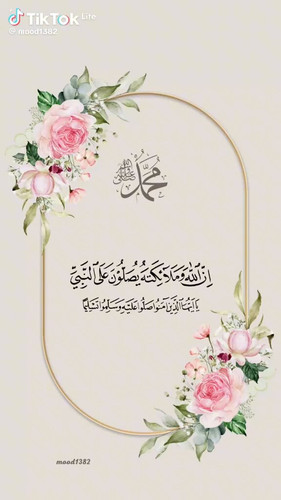 TikTok Lite
@mood1382
محمد ﷺ
إن الله وملائكته يصلون على النبي
يا أيها الذين آمنوا صلوا عليه وسلموا تسليما
mood1382